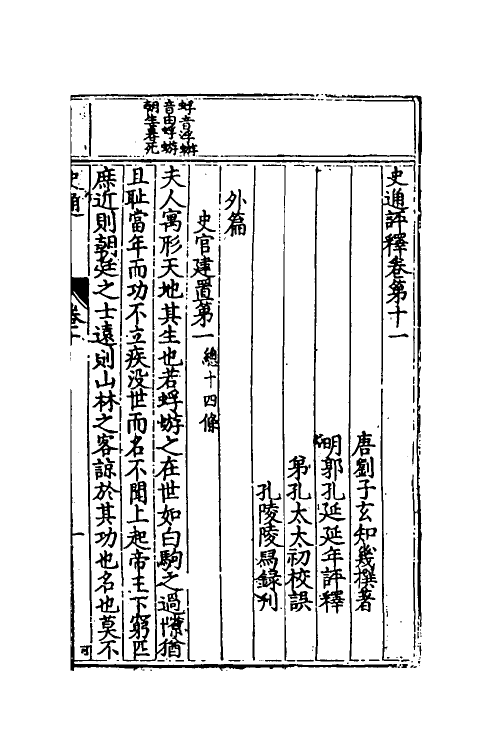 史通評釋卷第十一
唐劉子玄知幾撰著
明郭孔延延年評釋
弟孔太太初校誤
孔陵陵舄錄刋
外篇
史官建置第一 總十四條
夫人寓形天地其生也若蜉蝣之在世如白駒之過隙猶
且耻當年而功不立疾没世而名不聞上起帝王下窮匹
庶近則朝廷之士遠則山林之客諒於其功也名也莫不
蜉音浮蝣
音由蜉蝣
朝生暮死
史通
一